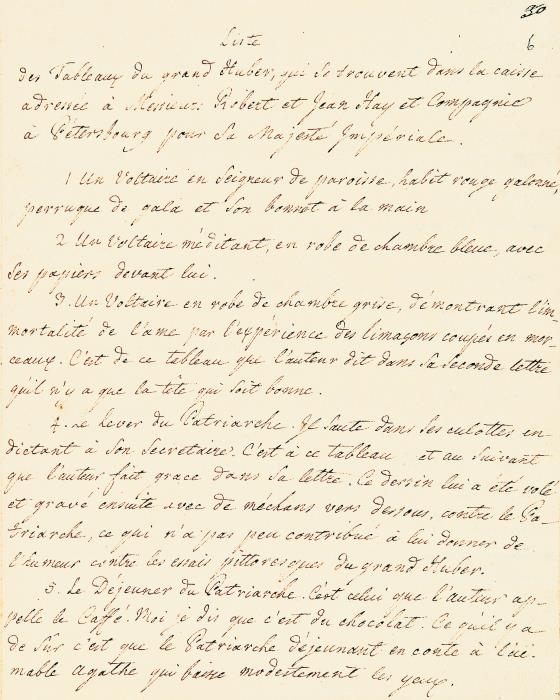 30
6
Liste
des Tableaux du grand Huber, qui se trouvent dans la caisse
adressée à Messieurs Robert et Jean Hay et Compagnie
à Pétersbourg pour Sa Majesté Impériale.
1 Un Voltaire en Seigneur de paroisse, habit rouge galonné,
perruque de gala et son bonnet à la main
2 Un Voltaire méditant, en robe de chambre bleue, avec
ses papiers devant lui.
3. Un Voltaire en robe de chambre grise, démontrant l'im
mortalité de l'ame par l'expérience des limaçons coupés en mor
ceaux. C'est de ce tableau que l'auteur dit dans sa seconde lettre
qu'il n'y a que la tête qui soit bonne.
4. Le Lever du Patriarche. Il saute dans ses culottes en
dictant à son Secretaire. C'est à ce tableau et au suivant
que l'auteur fait grace dans sa lettre. Ce dessin lui a été volé
et gravé ensuite avec de méchans vers dessous, contre le Pa-
triarche, ce qui n'a pas peu contribué à lui donner de
l'humeur contre les essais pittoresques du grand Huber.
5. Le Déjeuner du Patriarche. C'est celui que l'auteur ap-
pelle le Caffé. Moi je dis que c'est du chocolat. Ce qu'il y a
de sûr c'est que le Patriarche déjeunant en conte à l'ai
mable Agathe qui baisse modestement les yeux.